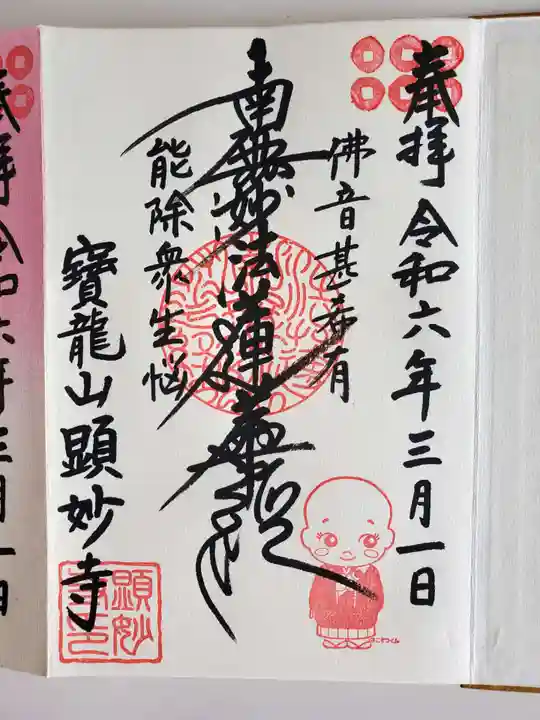 奉拝 令和六年三月一日
佛音甚希有
南無妙法蓮華経
能除衆生悩
寶龍山顕妙寺
顕妙
寺印
奉拝 令和六年三月一日